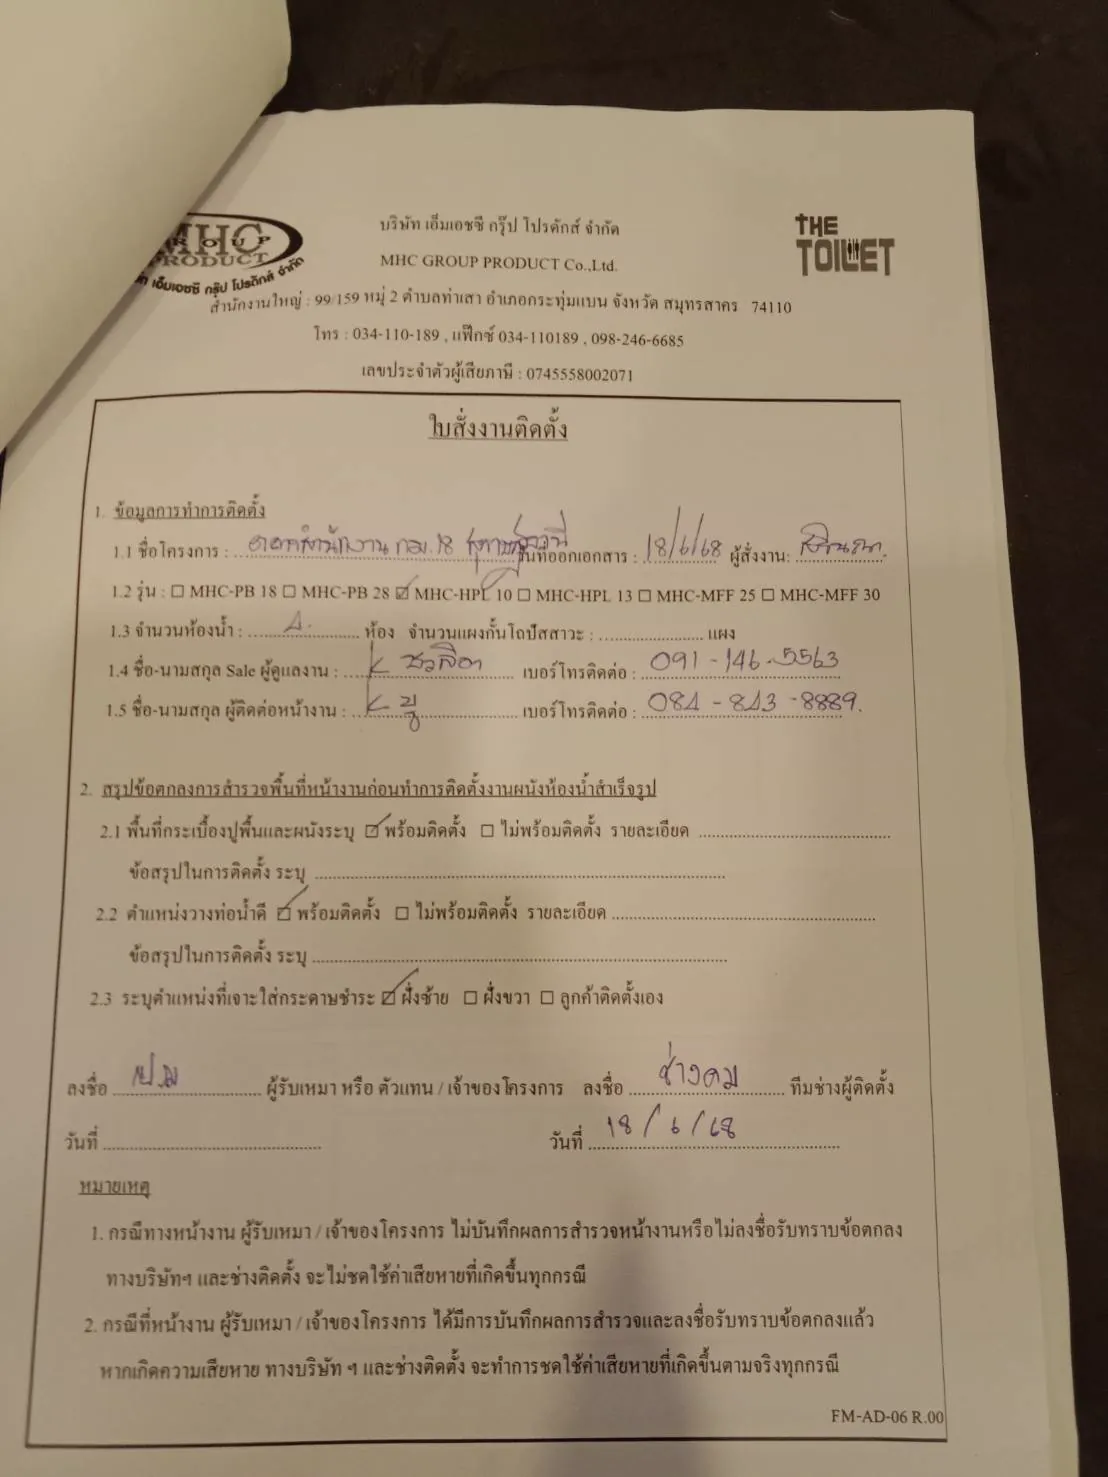 MHC
GROUP
PRODUCT
เอ็มเอชซี กรุ๊ป โปรดักส์ จำกัด
บริษัท เอ็มเอชซี กรุ๊ป โปรดักส์ จำกัด
MHC GROUP PRODUCT Co.,Ltd.
THE
TOILET
สำนักงานใหญ่ : 99/159 หมู่ 2 ตำบลท่าเสา อำเภอกระทุ่มแบน จังหวัด สมุทรสาคร 74110
โทร : 034-110-189 , แฟ๊กซ์ 034-110189 , 098-246-6685
เลขประจำตัวผู้เสียภาษี : 0745558002071
ใบสั่งงานติดตั้ง
1. ข้อมูลการทำการติดตั้ง
1.1 ชื่อโครงการ : อาคารสำนักงาน กม. 18 วันที่ออกเอกสาร : 18/6/68 ผู้สั่งงาน:
1.2 รุ่น : ☐ MHC-PB 18 ☐ MHC-PB 28 ☑ MHC-HPL 10 ☐ MHC-HPL 13 ☐ MHC-MFF 25 ☐ MHC-MFF 30
1.3 จำนวนห้องน้ำ : 4. ห้อง จำนวนแผงกั้นโถปัสสาวะ : .................... แผง
1.4 ชื่อ-นามสกุล Sale ผู้ดูแลงาน : ชวลิตา เบอร์โทรติดต่อ : 091-146-5563
1.5 ชื่อ-นามสกุล ผู้ติดต่อหน้างาน : เบอร์โทรติดต่อ : 084-843-8889.
2. สรุปข้อตกลงการสำรวจพื้นที่หน้างานก่อนทำการติดตั้งงานผนังห้องน้ำสำเร็จรูป
2.1 พื้นที่กระเบื้องปูพื้นและผนังระบุ ☑ พร้อมติดตั้ง ☐ ไม่พร้อมติดตั้ง รายละเอียด ....................
ข้อสรุปในการติดตั้ง ระบุ ....................
2.2 ตำแหน่งวางท่อน้ำดี ☑ พร้อมติดตั้ง ☐ ไม่พร้อมติดตั้ง รายละเอียด ....................
ข้อสรุปในการติดตั้ง ระบุ ....................
2.3 ระบุตำแหน่งที่เจาะใส่กระดาษชำระ ☑ ฝั่งซ้าย ☐ ฝั่งขวา ☐ ลูกค้าติดตั้งเอง
ลงชื่อ .................... ผู้รับเหมา หรือ ตัวแทน / เจ้าของโครงการ ลงชื่อ ช่างคม ทีมช่างผู้ติดตั้ง
วันที่ .................... วันที่ 18/6/68
หมายเหตุ
1. กรณีทางหน้างาน ผู้รับเหมา / เจ้าของโครงการ ไม่บันทึกผลการสำรวจหน้างานหรือไม่ลงชื่อรับทราบข้อตกลง
ทางบริษัทฯ และช่างติดตั้ง จะไม่ชดใช้ค่าเสียหายที่เกิดขึ้นทุกกรณี
2. กรณีที่หน้างาน ผู้รับเหมา / เจ้าของโครงการ ได้มีการบันทึกผลการสำรวจและลงชื่อรับทราบข้อตกลงแล้ว
หากเกิดความเสียหาย ทางบริษัท ฯ และช่างติดตั้ง จะทำการชดใช้ค่าเสียหายที่เกิดขึ้นตามจริงทุกกรณี
FM-AD-06 R.00